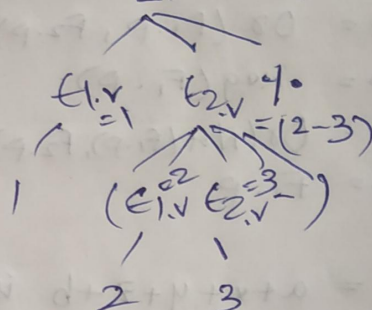 E1.v E2.v %
=1 =(2-3)
1 (E1.v =2 E2.v =3 -)
2 3